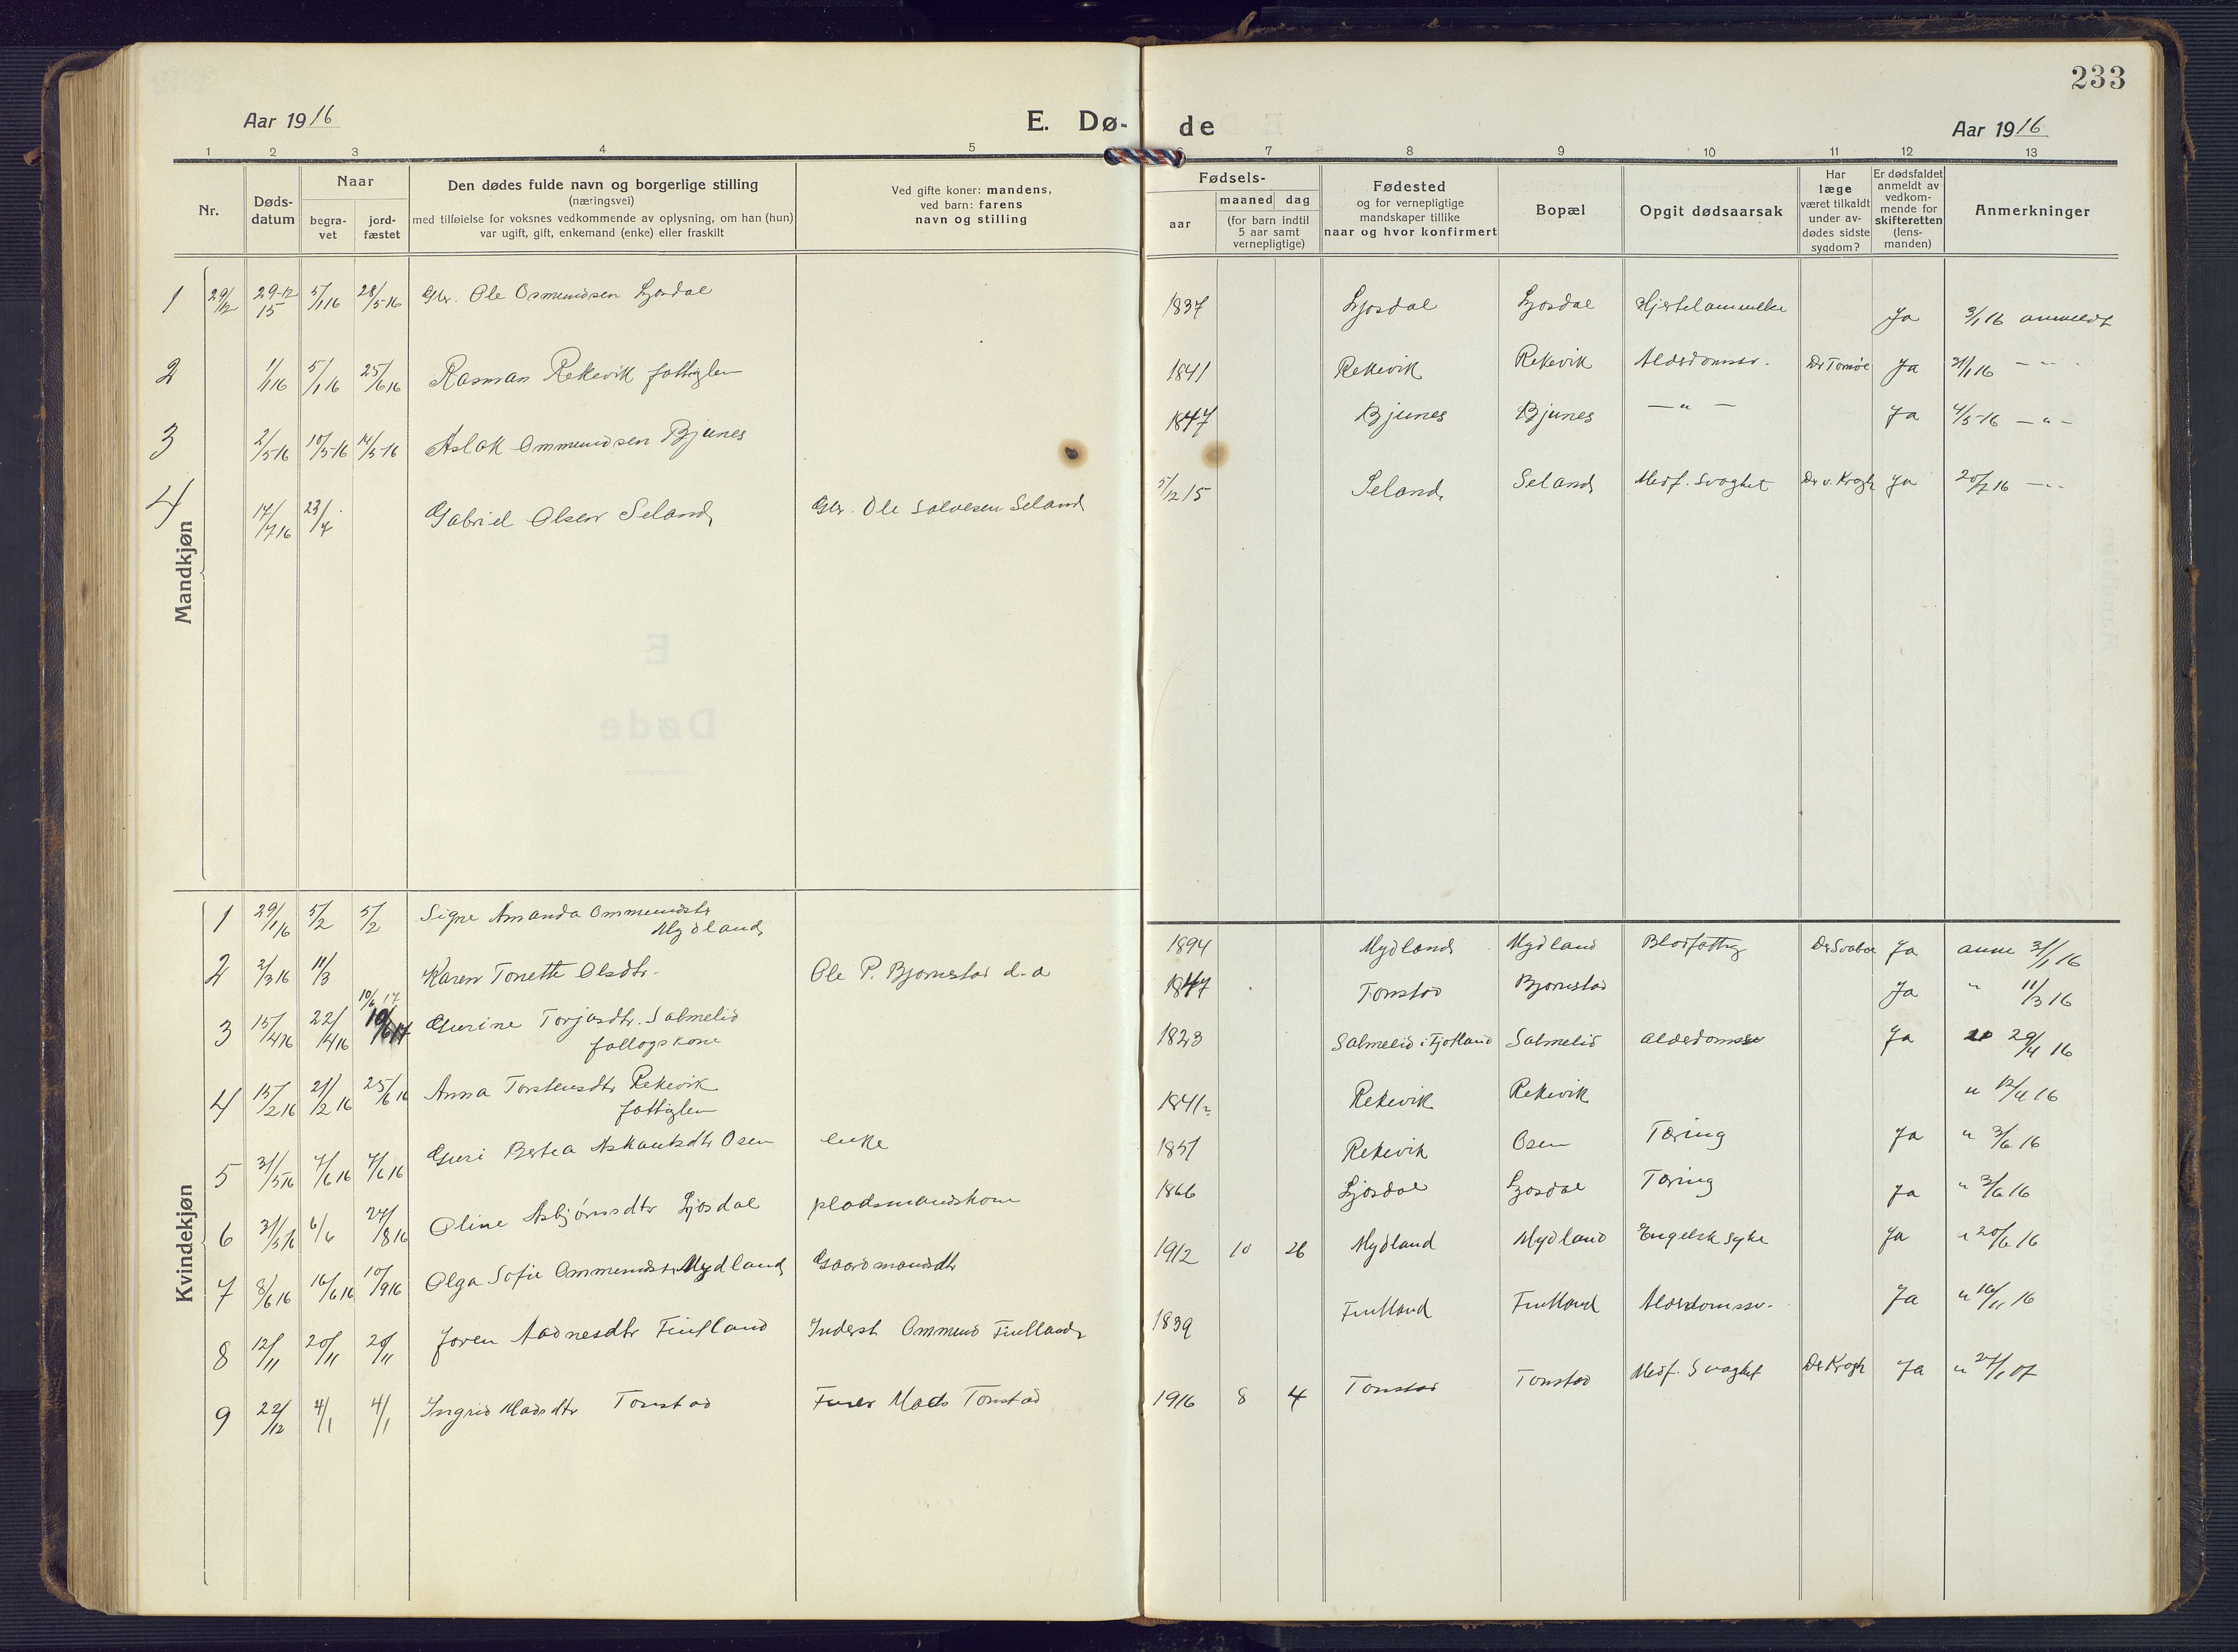 233
Aar 1916
E. Dø-
de
Aar 1916
1 2 3 4 5 6 7 8 9 10 11 12 13
Nr.
Døds-
datum
Naar
begra-
vet
jord-
fæstet
Den dødes fulde navn og borgerlige stilling
(næringsvei)
med tilføielse for voksnes vedkommende av oplysning, om han (hun)
var ugift, gift, enkemand (enke) eller fraskilt
Ved gifte koner: mandens,
ved barn: farens
navn og stilling
Fødsels-
aar
maaned dag
(for barn indtil
5 aar samt
vernepligtige)
Fødested
og for vernepligtige
mandskaper tillike
naar og hvor konfirmert
Bopæl
Opgit dødsaarsak
Har
læge
været tilkaldt
under av-
dødes sidste
sygdom?
Er dødsfaldet
anmeldt av
vedkom-
mende for
skifteretten
(lens-
manden)
Anmerkninger
Mandkjøn
1 29/12 29-12 15 5/1 16 28/5-16 Gbr. Ole Osmundsen Ljosdal 1837 Ljosdal Ljosdal Hjertelammelse Ja 3/1 16 anmeldt
2 1/1 16 5/1 16 25/6 16 Rasman Rekevik fattiglem 1841 Rekevik Rekevik Alderdomssv. Dr Tomøe Ja 3/1 16 — " -
3 2/5-16 10/5-16 14/5-16 Aslak Ommundsen Bjunes 1847 Bjunes Bjunes — " — Ja 4/5-16 — " -
4 17/7 16 23/7 Gabriel Olsen Seland Gbr. Ole Salvesen Seland 5/12 15 Seland Seland Medf. Svaghet Dr v. Krogh Ja 20/7 16 — " -
Kvindekjøn
1 29/1 16 5/2 5/2 Signe Amanda Ommundsdtr
Mydland 1894 Mydland Mydland Blodfattig Ja anm 31/1 16
2 2/3 16 11/3 Karen Tonette Olsdtr. Ole P. Bjørnestad d.a 1847 Tonstad Bjørnestad Ja " 11/3 16
3 15/4 16 22/4 16 10/6 17 Gurine Torjusdtr. Salmelid
follogskone 1823 Salmelid i Fjotland Salmelid alderdomssv Ja 29/4 16
4 15/2 16 21/2 16 25/6 16 Anna Torstensdtr Rekevik
fattiglem 1841 Rekevik Rekevik " 12/4 16
5 31/5 16 7/6 16 7/6 16 Guri Bertea Osen enke 1851 Rekevik Osen Tæring Ja " 3/6 16
6 31/5 16 6/6 27/8 16 Oline Asbjørnsdtr Ljosdal pladsmandskone 1866 Ljosdal Ljosdal Tæring Ja " 3/6 16
7 8/6 16 16/6 16 10/9 16 Olga Sofie Ommundsdtr Mydland Gaardmandsdtr 1912 10 26 Mydland Mydland Engelsk syke Ja " 20/6 16
8 12/11 20/11 20/11 Joren Aadnesdtr Fintland Inderst Ommund Fintland 1839 Fintland Fintland Alderdomssv. Ja " 16/11 16
9 22/12 4/1 4/1 Ingrid Madsdtr Tonstad Mads Tonstad 1916 8 4 Tonstad Tonstad Medf. Svaghet Dr Krogh Ja " 27/1 17